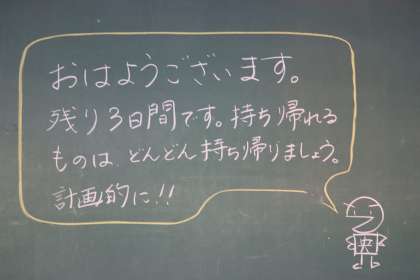 おはようございます。
残り3日間です。持ち帰れる
ものは、どんどん持ち帰りましょう。
計画的に!!
央